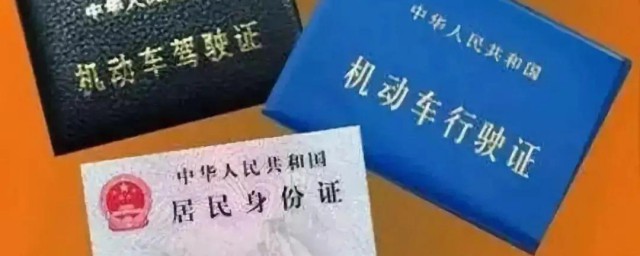 中华人民共和国
机动车驾驶证
中华人民共和国
机动车行驶证
中华人民共和国
居民身份证